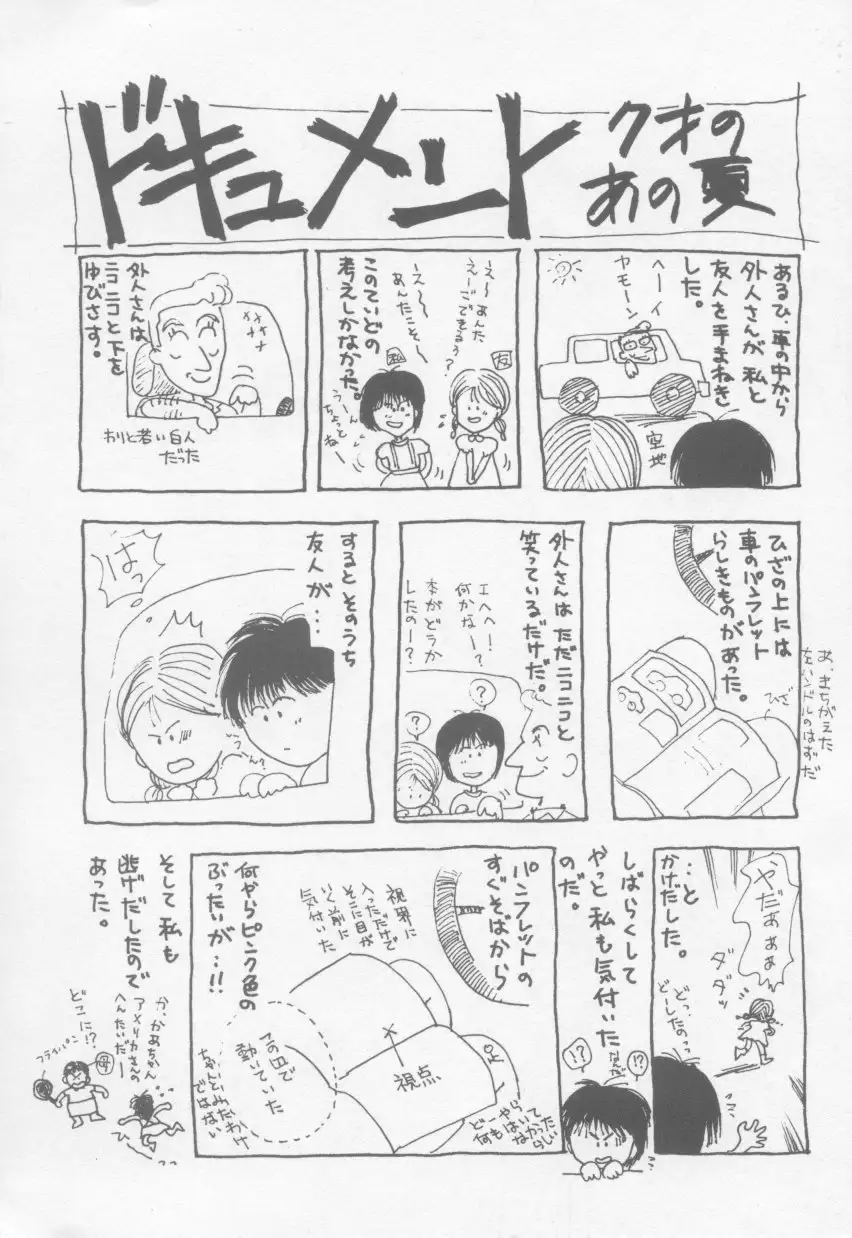 ドキュメント
クオの
あの夏
あるひ、車の中から
外人さんが私と
友人を手まねき
した。
ヘーイ
ヤモーン
空地
え〜あんた
えーごできるぅ?
え〜〜
あんたこそ〜
友
私
うーん
ちょっと
ねー
このていどの
考えしかなかった。
外人さんは
ニコニコと下を
ゆびさす。
わりと若い白人
だった
ひざの上には
車のパンフレット
らしきものがあった。
ひざ
あ、きちがえた
左ハンドルのはずだ
外人さんはただニコニコと
笑っているだけだ。
エヘヘ!
何かなー?
本がどうか
したのー?
?
?
するとそのうち
友人が…
はっ
…と
かけだした。
やだぁぁぁ
ダダッ
どっ、
どーしたのっ
しばらくして
やっと私も気付いた
のだ。
!?
なんか
!?
パンフレットの
すぐそばから
視界に
入っただけで
そこに目が
いく前に
気付いた
何やらピンク色の
ぶったいが…!!
視点
動いていた
ちゃんとみたわけ
ではない
そして私も
逃げだしたので
あった。
かっかあちゃん
アメリカさんの
へんたいだー
どこに!?
フライパン
母
ひーっ